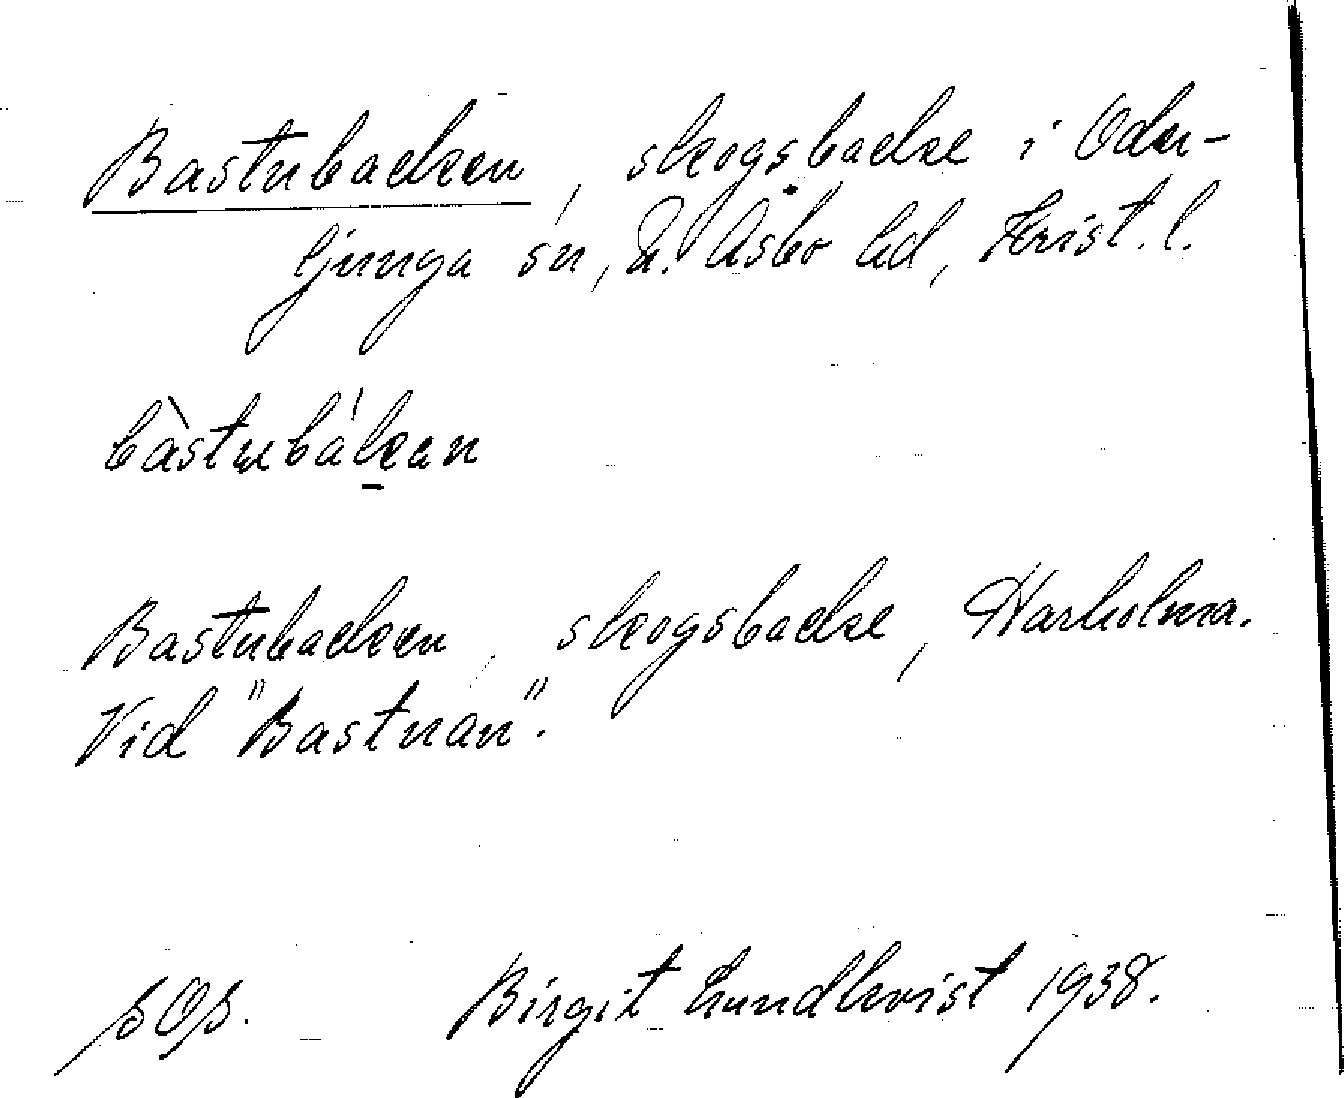 Bastubacken, skogsbacke i Oder-
ljunga sn, N. Åsbo hd, Krist. l.
bàstubákan
Bastubacken, skogsbacke, Harholma.
Vid "Bastuan".
SOS. Birgit Lundkvist 1938.